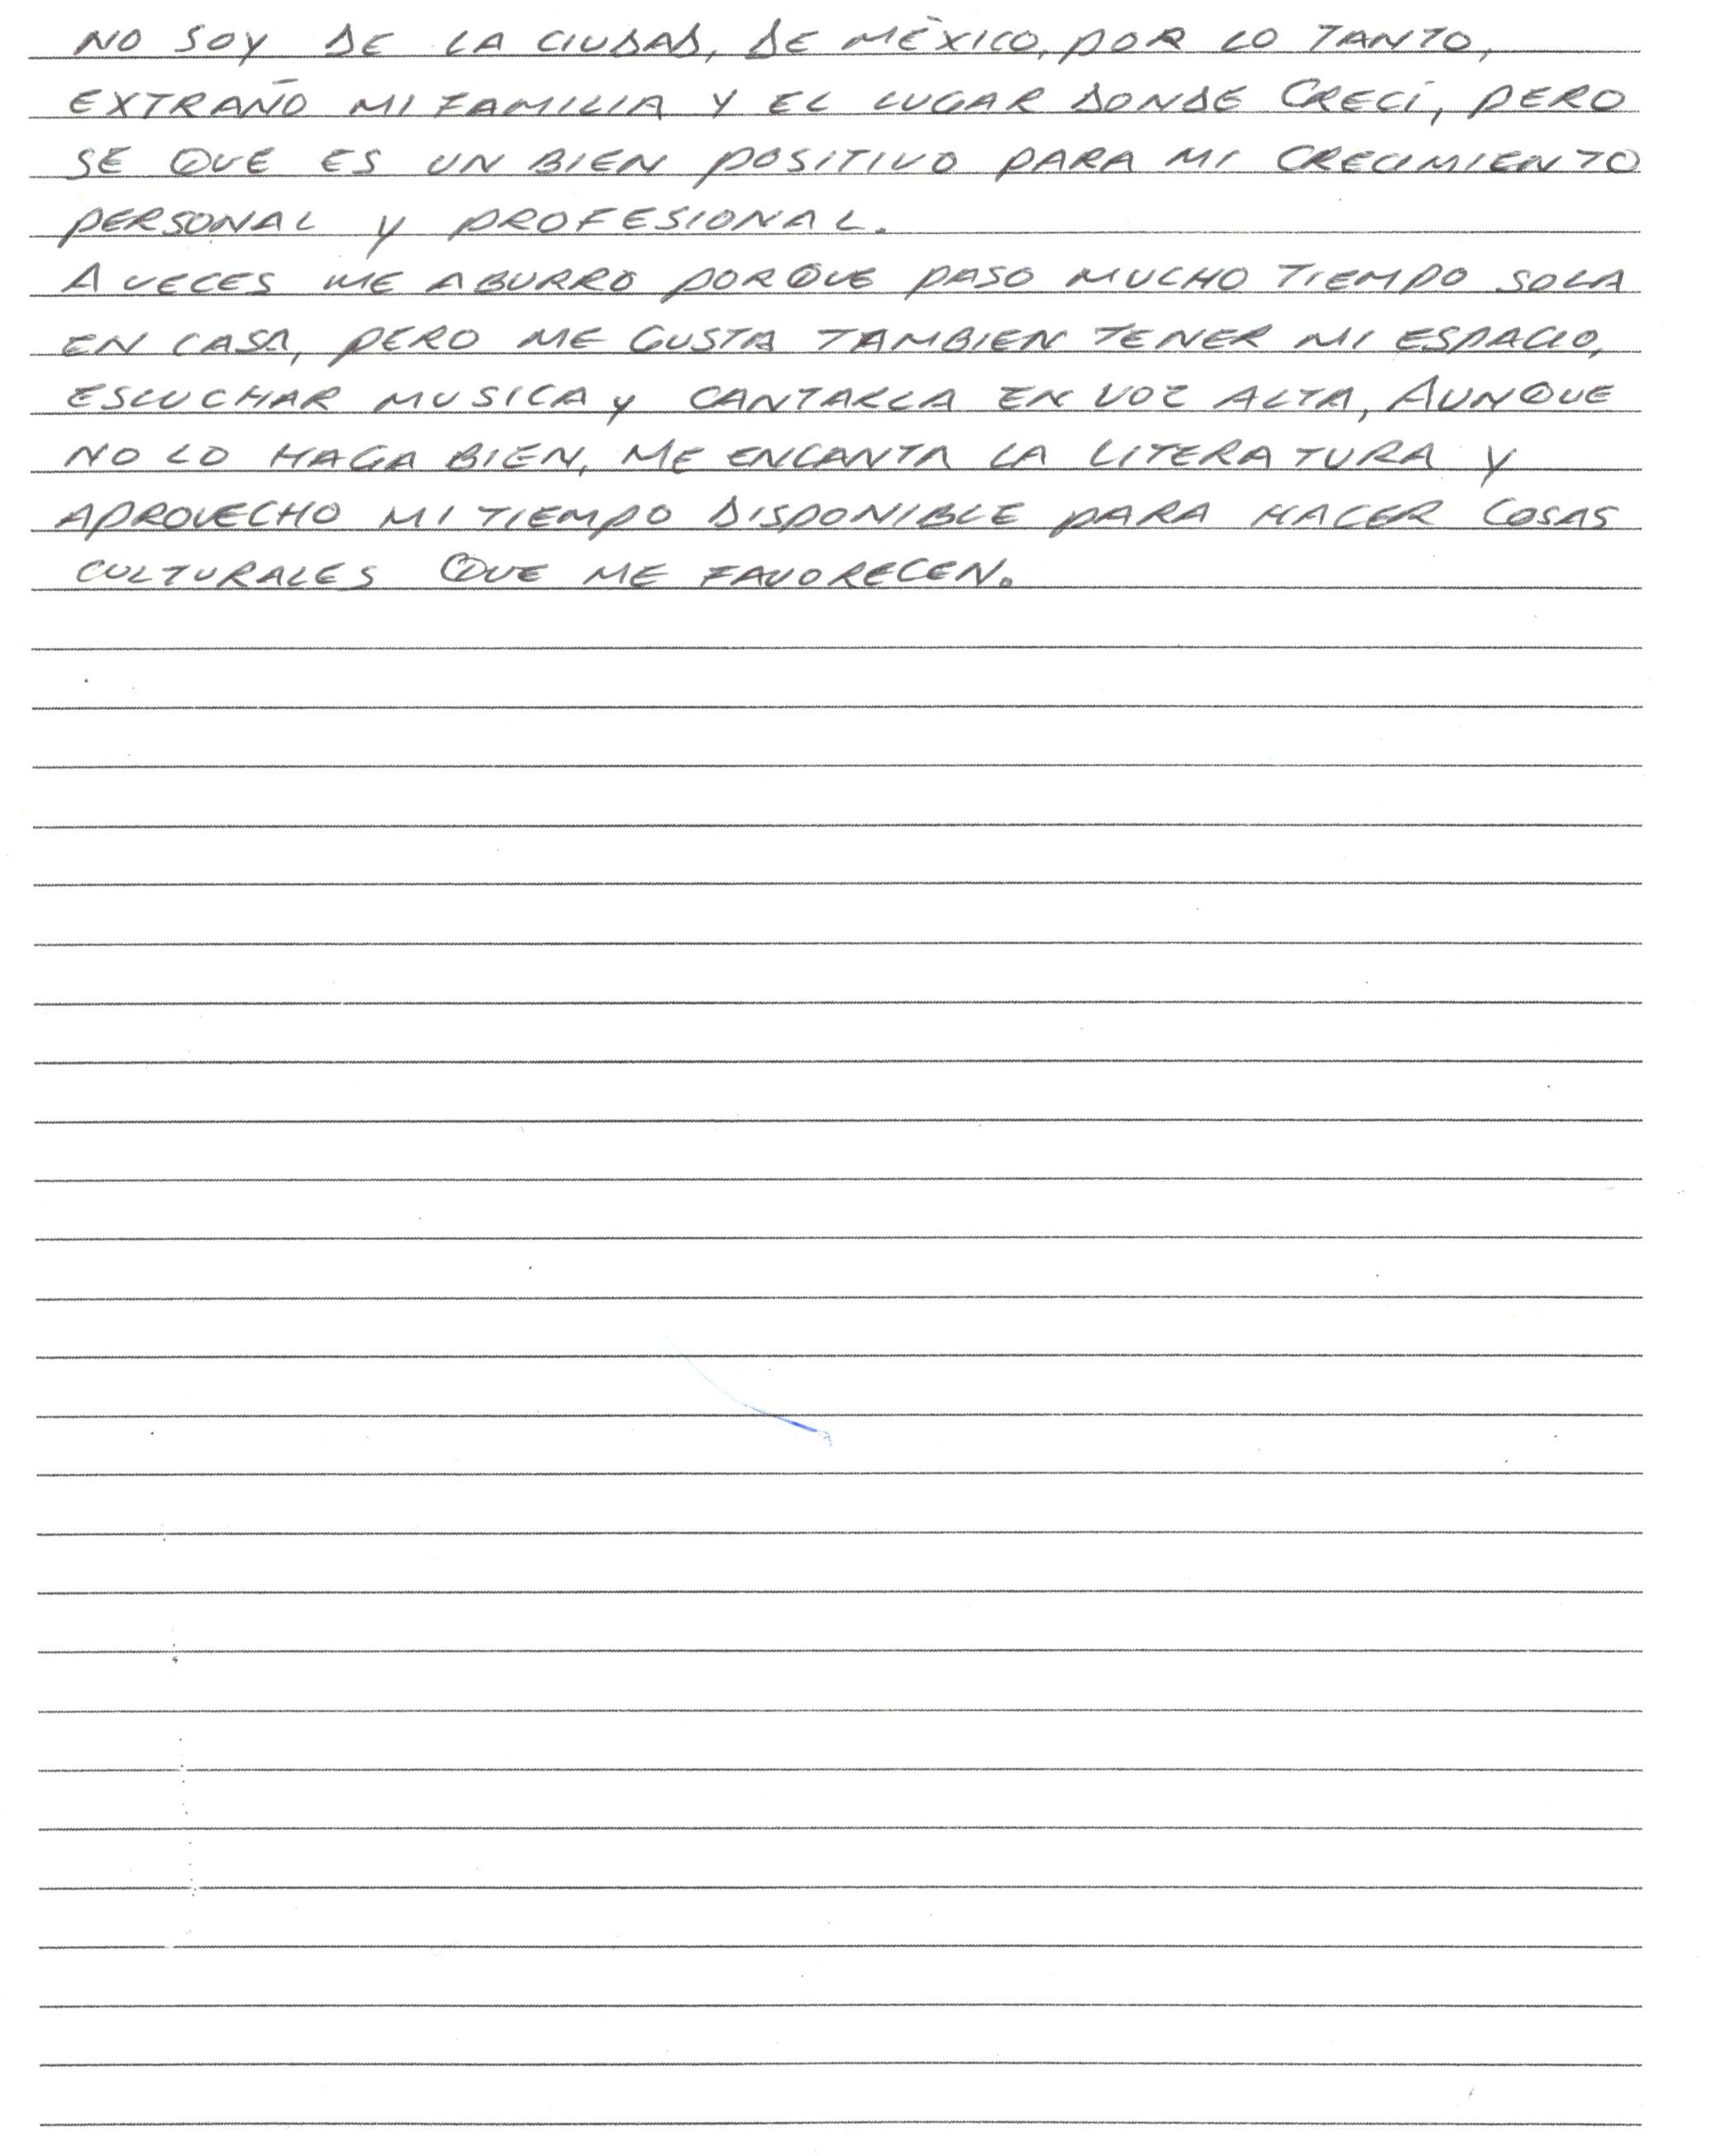 NO SOY DE LA CIUDAD, DE MÉXICO, POR LO TANTO,
EXTRAÑO MI FAMILIA Y EL LUGAR DONDE CRECÍ, PERO
SE QUE ES UN BIEN POSITIVO PARA MI CRECIMIENTO
PERSONAL Y PROFESIONAL.
A VECES ME ABURRO PORQUE PASO MUCHO TIEMPO SOLA
EN CASA, PERO ME GUSTA TAMBIEN TENER MI ESPACIO,
ESCUCHAR MUSICA Y CANTARLA EN VOZ ALTA, AUNQUE
NO LO HAGA BIEN, ME ENCANTA LA LITERATURA Y
APROVECHO MI TIEMPO DISPONIBLE PARA HACER COSAS
CULTURALES QUE ME FAVORECEN.